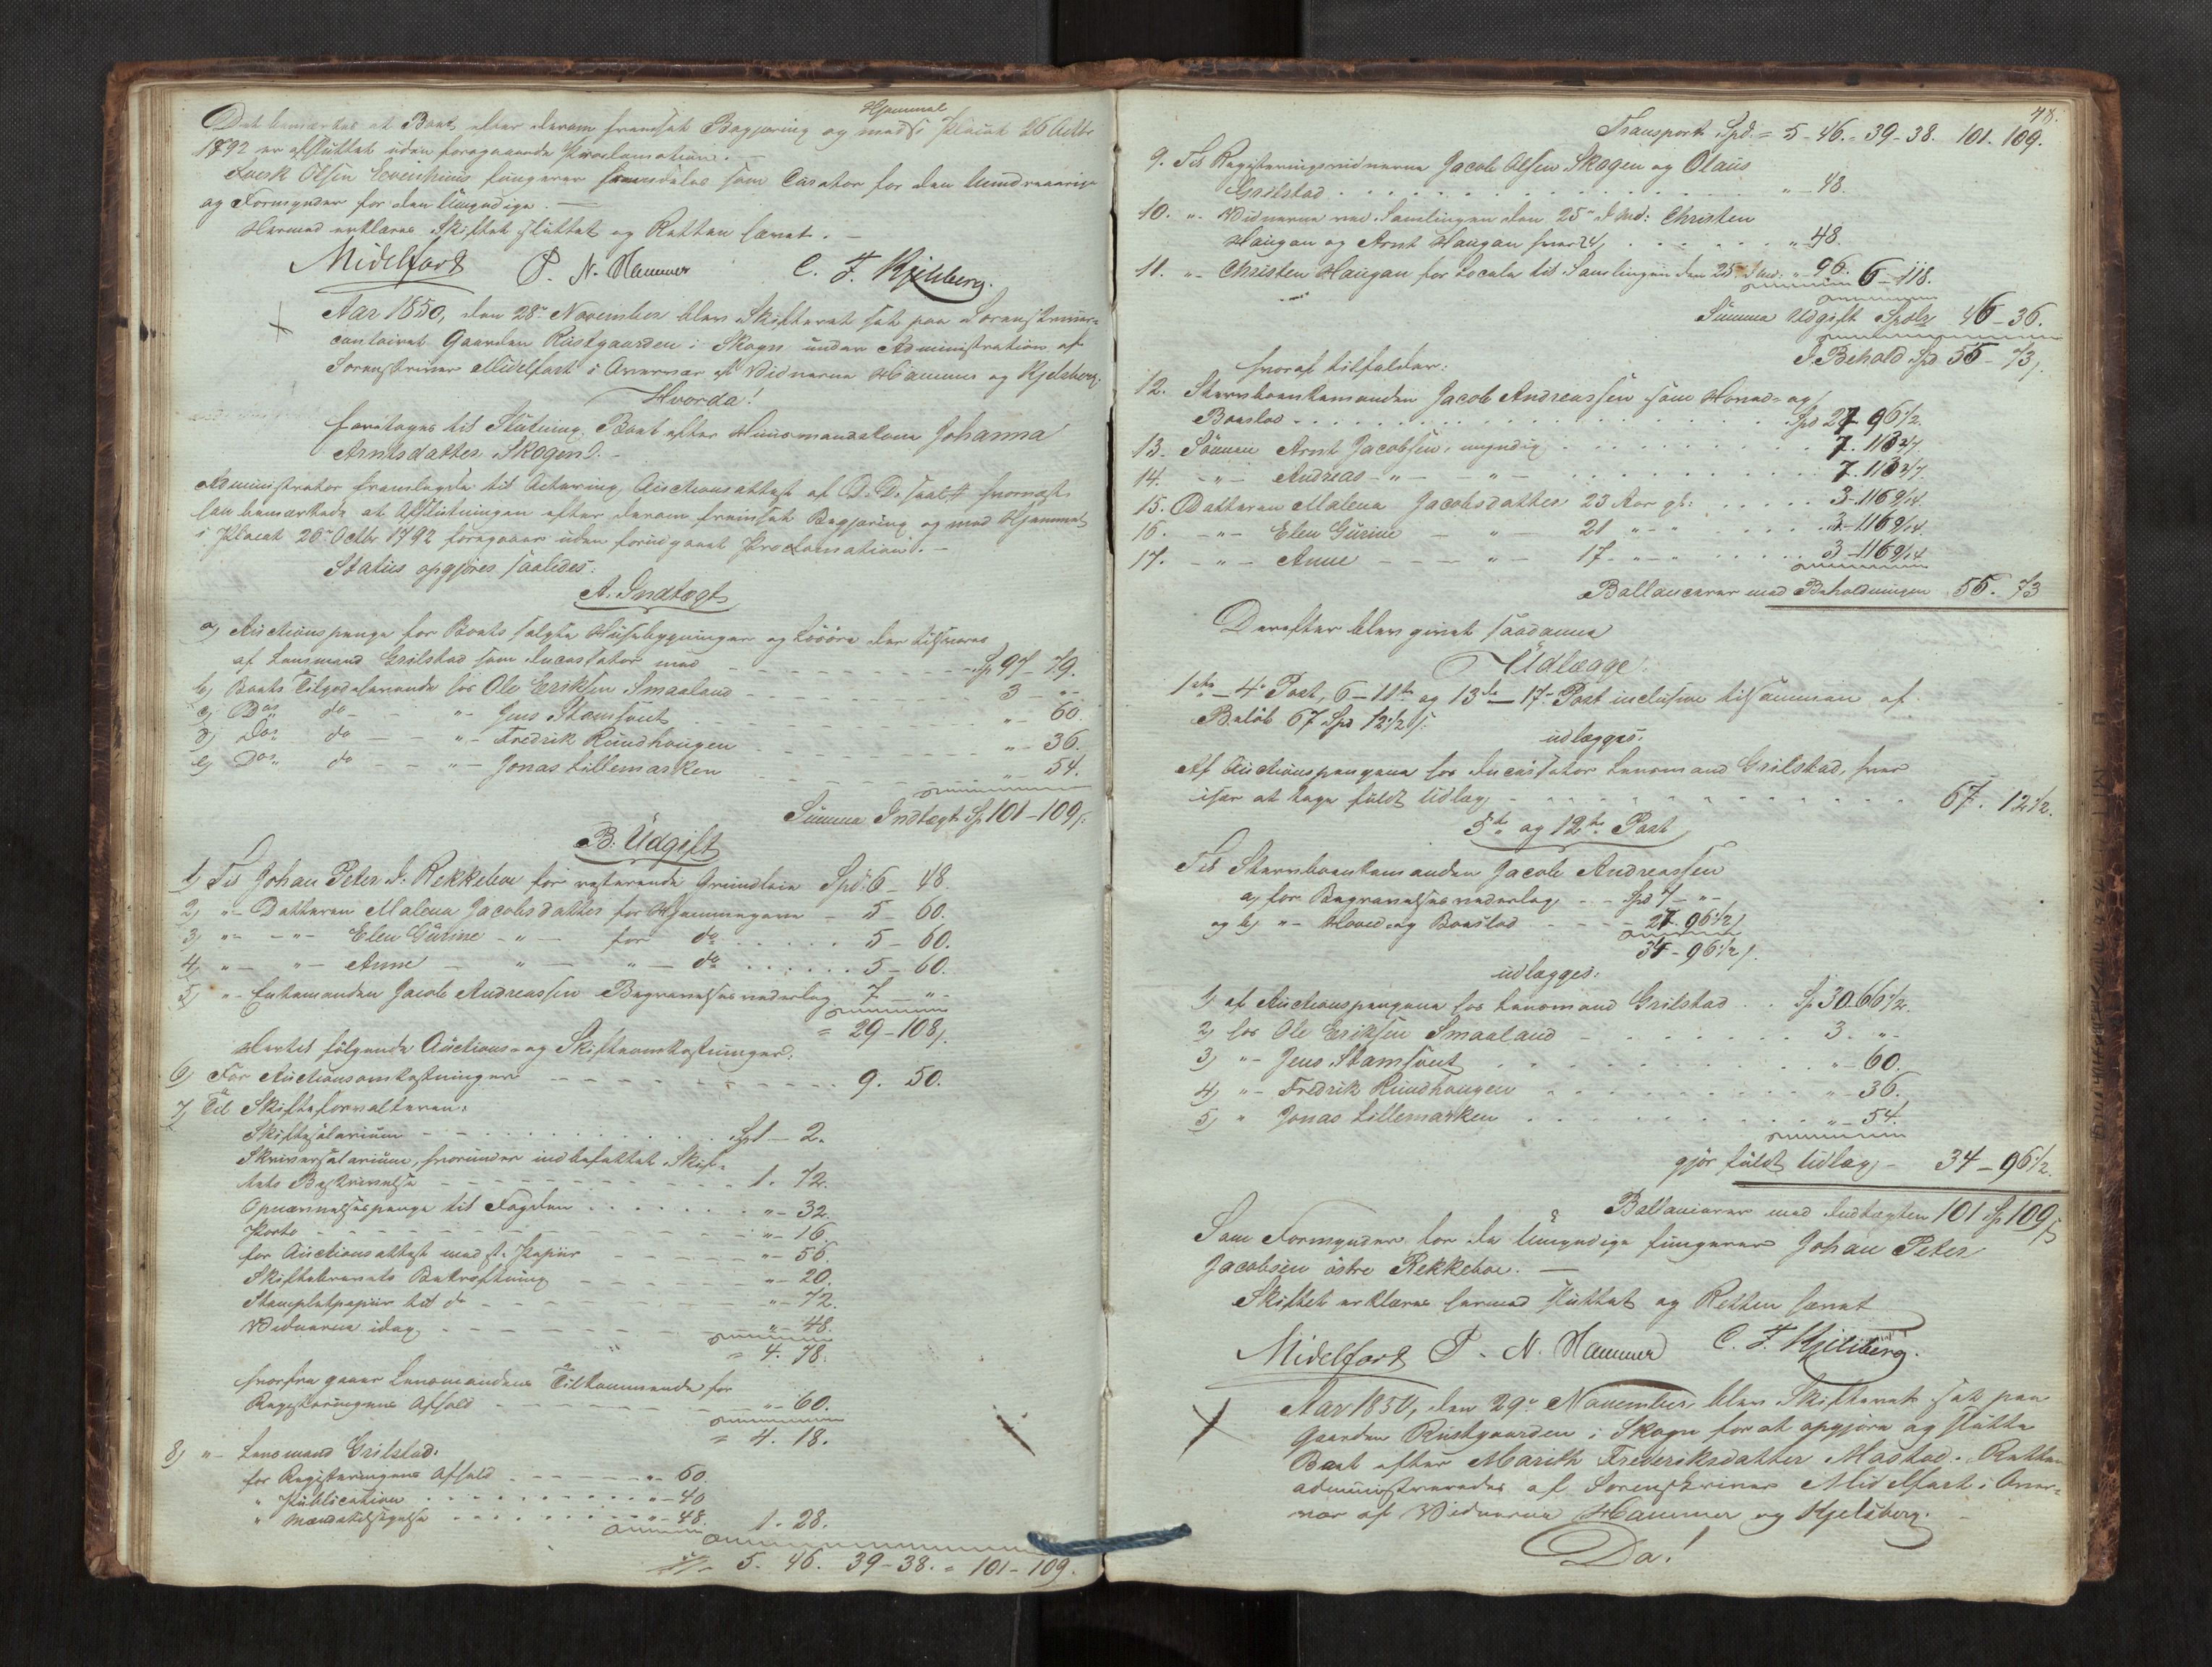 Hjemmel
Det bemærkes at Boet efter derom fremsat Begjæring og med i Placat 26 Octbr
1792 er afsluttet uden foregaaende Proclamation. —
Olsen fungerer fremdeles som Curator for den
og Formynder for den Umyndige. —
Hermed erklæres Skiftet sluttet og Retten hævet. —
Midelfart P. N. Hammer C. F. Kjelsberg.
Aar 1850, den 28de November blev Skifteret sat paa Sorenskriver-
contoiret Gaarden Rustgaarden i Skogn under Administration af
Sorenskriver Midelfart i Overvær af Vidnerne Hammer og Kjelsberg.
Hvorda!
foretoges til Slutning Boet efter Huusmandskone Johanna
Arntsdatter Skogen. —
Administrator fremlagde til Actering Auctionsattest af D. D. saal. # hvornæst
han bemærkede at Afslutningen efter derom fremsat Begjæring og med Hjemmel
i Placat 26de Octbr 1792 foregaaer uden forudgaaet Proclamation. —
Status opgjøres saaledes:
A. Indtægt
a) Auctionspenge for Boets solgte Huusebygninger og Løsøre der tilsvares
af Lensmand Grilstad som Incassator med - - - Sp 97 - 79.
b) Boets Tilgodehavende hos Ole Eriksen Smaaland - - - 3 - "-
c) Do do - "- Jens Stamsvet - - - "- 60.
d) Do do - "- Fredrik Rundhaugen - - - "- 36.
e) Do do - "- Jonas Lillemarken - - - "- 54.
Summa Indtægt Sp 101 - 109 s.
B. Udgift
1) Til Johan Peter J. Rekkeboe for resterende Grundleie Spd. 6 - 48.
2) "- Datteren Malena Jacobsdatter for Hjemmegave - 5 - 60.
3) "- "- Elen Gurine - "- for do . . . 5 - 60.
4) "- "- Anne - "- "- do . . . 5 - 60.
5) "- Enkemanden Jacob Andreassen Begravelsesvederlag 7 - "-
= 29 - 108 s.
Hertil følgende Auctions- og Skifteomkostninger:
6) For Auctionsomkostninger - - - 9. 50.
7) Til Skifteforvalteren:
Skiftesalarium - - - Sp 1 - 2.
Skriversalarium, hvorunder indbefattet Skif-
tets Beskrivelse - - - 1. 72.
Opnævnelsespenge til Fogden . . . "- 32.
Porto - - - "- 16.
for Auctionsattest med st. Papiir - - - "- 56.
Skiftebrevets Bekræftning - - - "- 20.
Stempletpapiir til do - - - "- 72.
Vidnerne idag - - - "- 48.
= 4. 78.
hvorfra gaaer Lensmandens Tilkommende for
Registeringens Afhold - - - "- 60.
= 4. 18.
8) "- Lensmand Grilstad:
for Registeringens Afhold - - - "- 60.
" Publication . . . "- 40
" Mændstilsigelse . . . "- 48.
1. 28.
5. 46. 39 - 38. = 101 - 109.
48.
Transport Spd. = 5 - 46. = 39 - 38. 101. 109.
9. Til Registeringsvidnerne Jacob Olsen Skogen og Olaus
Grilstad . . . "- 48.
10. "- Vidnerne ved Samlingen den 25de d. Md: Christen
Haugan og Arnt Haugan hver 24 . . . "- 48.
11. "- Christen Haugan for Locale til Samlingen den 25 d. Md. "- 96. 6 - 118.
Summa Udgift Spdlr 46 - 36.
I Behold Spd 55 - 73 s.
hvoraf tilfalder:
12. Stervboenkemanden Jacob Andreassen som Hoved- og
Boeslod . . . Spd 27 - 96 1/2.
13. Sønnen Arnt Jacobsen, umyndig . . . 7. 113 2/7.
14. -"- Andreas -"- -"- . . . 7. 113 2/7.
15. Datteren Malena Jacobsdatter 23 Aar gl: . . . 3 - 116 9/14.
16. -"- Elen Gurine - "- 21 "- . . . 3 - 116 9/14.
17. -"- Anne - - - "- 17 "- . . . 3 - 116 9/14.
Ballancerer med Beholdningen 55. 73
Derefter blev givet saadanne
Udlægge:
1ste - 4de Post, 6 - 11te og 13de - 17de Post inclusive tilsammen af
Beløb 67 Spd 12 1/2 s.
udlægges:
Af Auctionspengene hos Incassator Lensmand Grilstad, hver
især at tage fuldt Udlæg - - - 67. 12 1/2.
5te og 12te Post
Til Stervboenkemanden Jacob Andreassen
a) for Begravelsesvederlag - - Spd 7 - "-
og b) "- Hoved- og Boeslod - - - 27 - 96 1/2 s.
34 - 96 1/2 s.
udlægges:
1) af Auctionspengene hos Lensmand Grilstad . . Sp 30 - 66 1/2.
2) hos Ole Eriksen Smaaland - . . . 3. "-
3) "- Jens Stamsvet . . . "- 60.
4) "- Fredrik Rundhaugen . . . "- 36.
5) " Jonas Lillemarken . . . "- 54.
gjør fuldt Udlæg - 34 - 96 1/2.
Ballancerer med Indtægten 101 Sp 109 s
Som Formynder for de Umyndige fungerer Johan Peter
Jacobsen østre Rekkeboe. —
Skiftet erklæres hermed sluttet og Retten hævet
Midelfart P. N. Hammer C. F. Kjelsberg.
Aar 1850, den 29de November blev Skifteret sat paa
Gaarden Rustgaarden i Skogn for at opgjøre og slutte
Boet efter Marith Frederiksdatter Mostad. Retten
administreredes af Sorenskriver Midelfart i Over-
vær af Vidnerne Hammer og Kjelsberg.
Da!